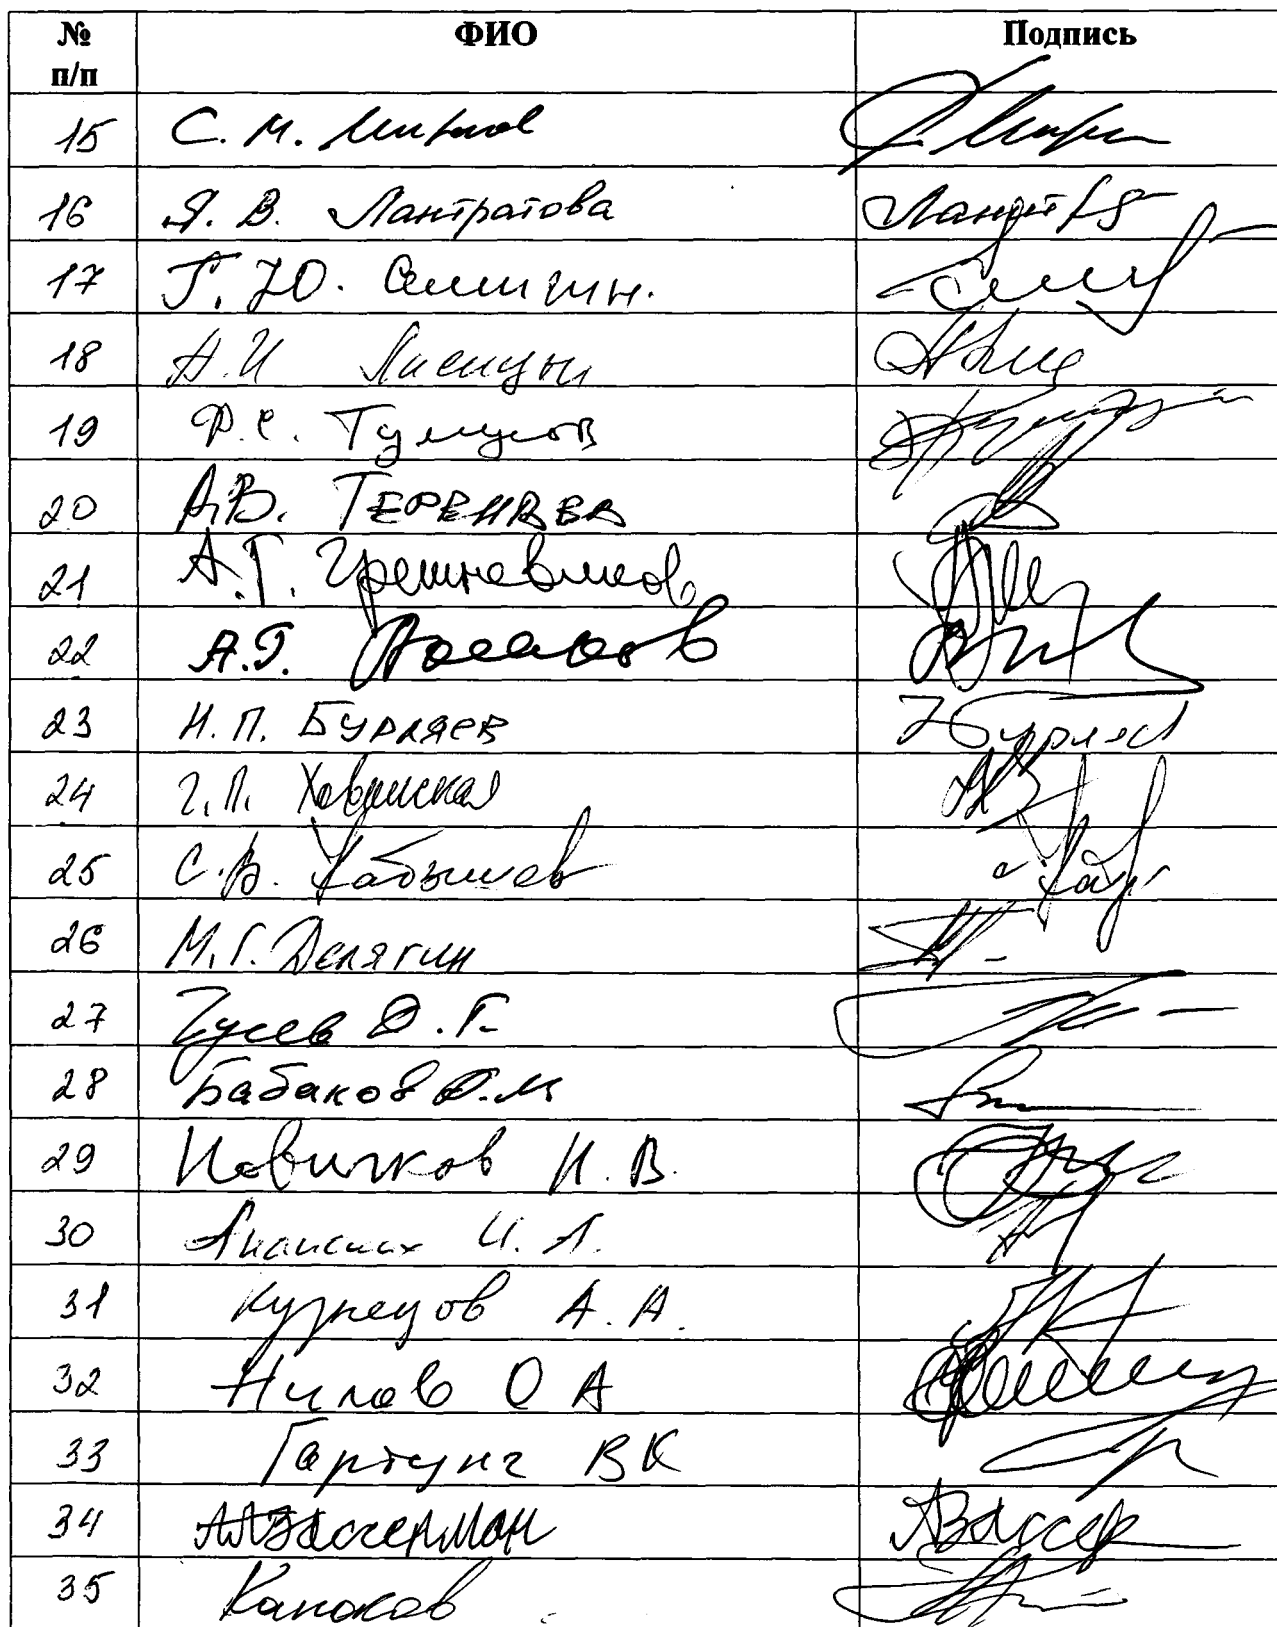 № п/п ФИО Подпись
15 С. М. Миронов
16 Я. В. Лантратова
17 Г. Ю. Семигин.
18 А.И Лисицын
19 Ф.С. Тумусов
20 А.В. ТЕРЕНТЬЕВ
21 А.Г. Грешневиков
22 А.Г. Аксаков
23 Н.П. БУРЛЯЕВ
24 Г.П. Хованская
25 С.В. Кабышев
26 М.Г. Делягин
27 Гусев Д.Г.
28 Бабаков О.М
29 Новичков Н.В.
30 Ананских И.А.
31 Кузнецов А.А.
32 Нилов О А
33 Гартунг ВК
34 АА Вассерман
35 Каноков